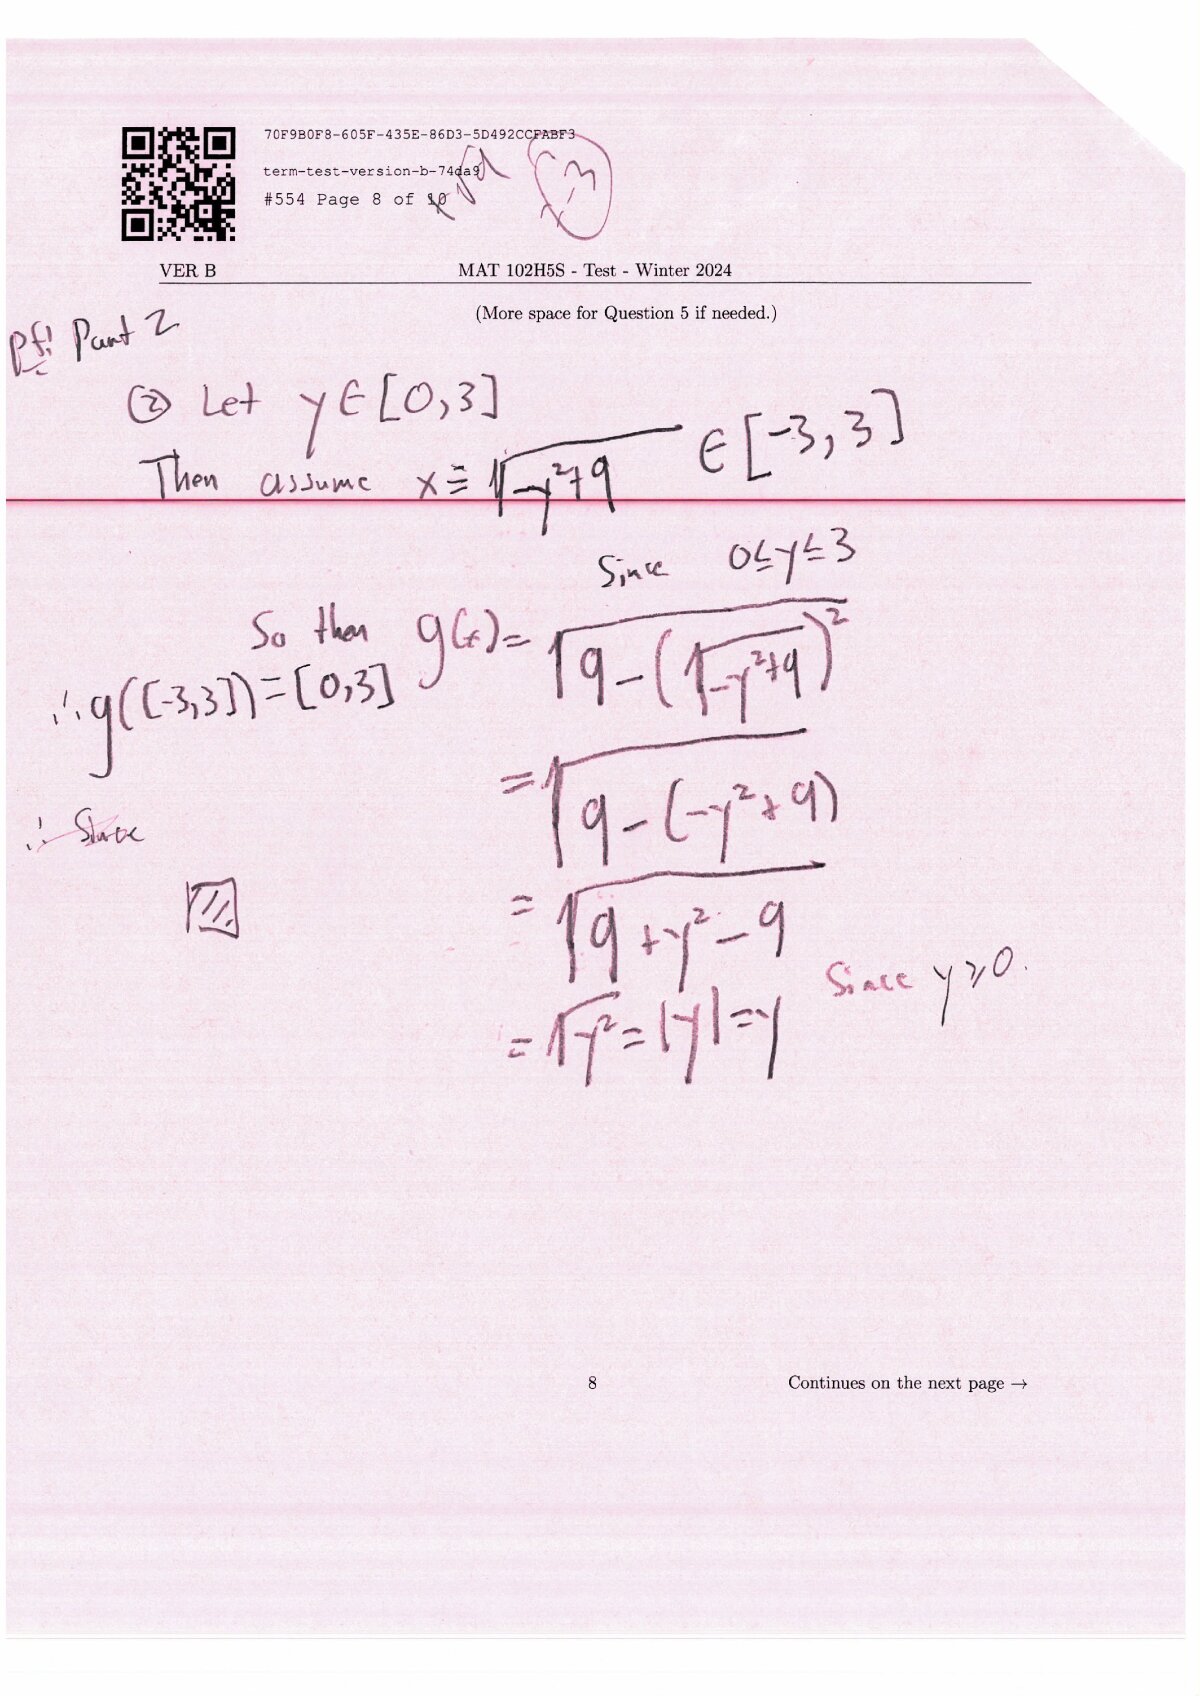 70F9B0F8-605F-435E-86D3-5D492CCFABF3
term-test-version-b-74da9
#554 Page 8 of 10
VER B
MAT 102H5S - Test - Winter 2024
(More space for Question 5 if needed.)
Pf! Part 2
② Let y ∈ [0,3]
Then assume x = √(-y²+9) ∈ [-3,3]
Since 0≤y≤3
So then g(x) = √(9-(√(-y²+9))²)
∴ g([-3,3]) = [0,3]
= √(9-(-y²+9))
∴ Since
= √(9+y²-9)
= √y² = |y| = y Since y ≥ 0.
8
Continues on the next page →